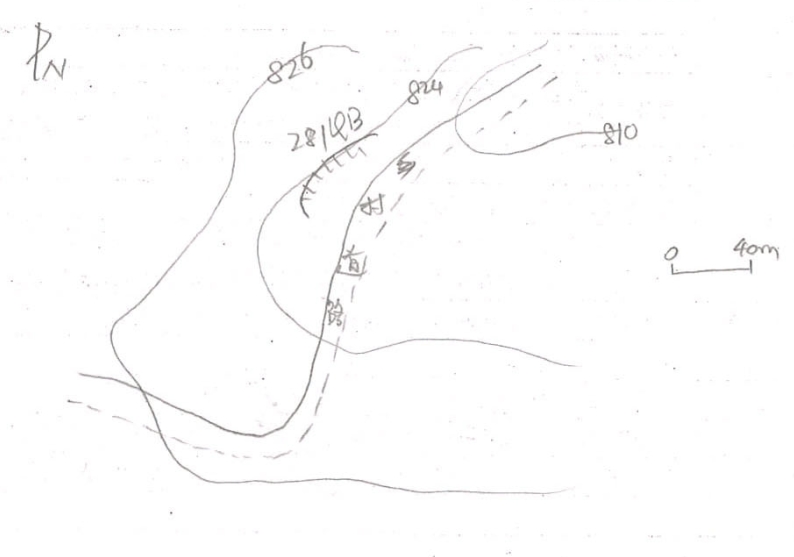 N
826
824
281QB
810
乡
村
道
路
0 40m